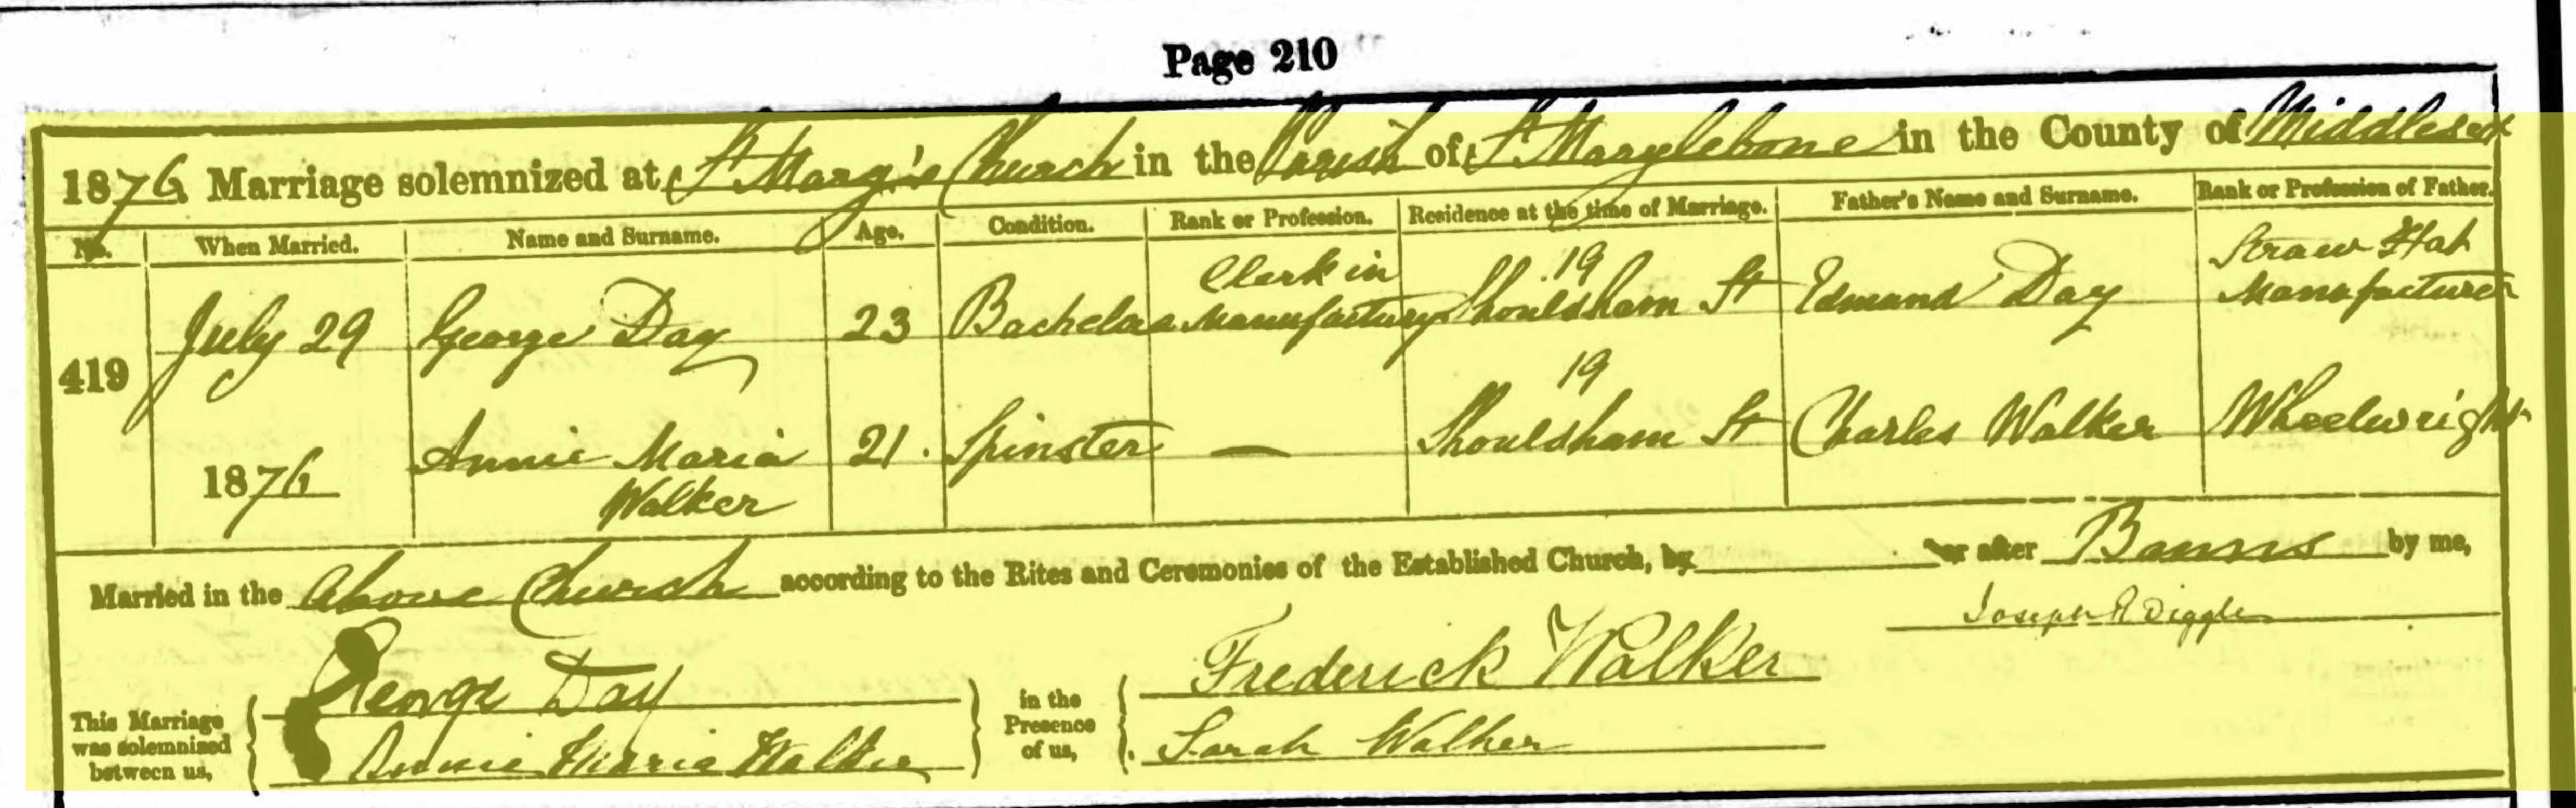 Page 210
1876 Marriage solemnized at St Mary's Church in the Parish of St Marylebone in the County of Middlesex
No. When Married. Name and Surname. Age. Condition. Rank or Profession. Residence at the time of Marriage. Father's Name and Surname. Rank or Profession of Father.
419 July 29 George Day 23 Bachelor Clerk in Manufactury 19 Shouldham St Edmund Day Straw Hat Manufacturer
1876 Annie Maria Walker 21. Spinster — 19 Shouldham St Charles Walker Wheelwright
Married in the above Church according to the Rites and Ceremonies of the Established Church, by or after Banns by me,
Joseph R Diggle
This Marriage was solemnized between us, George Day Annie Maria Walker in the Presence of us, Frederick Walker Sarah Walker